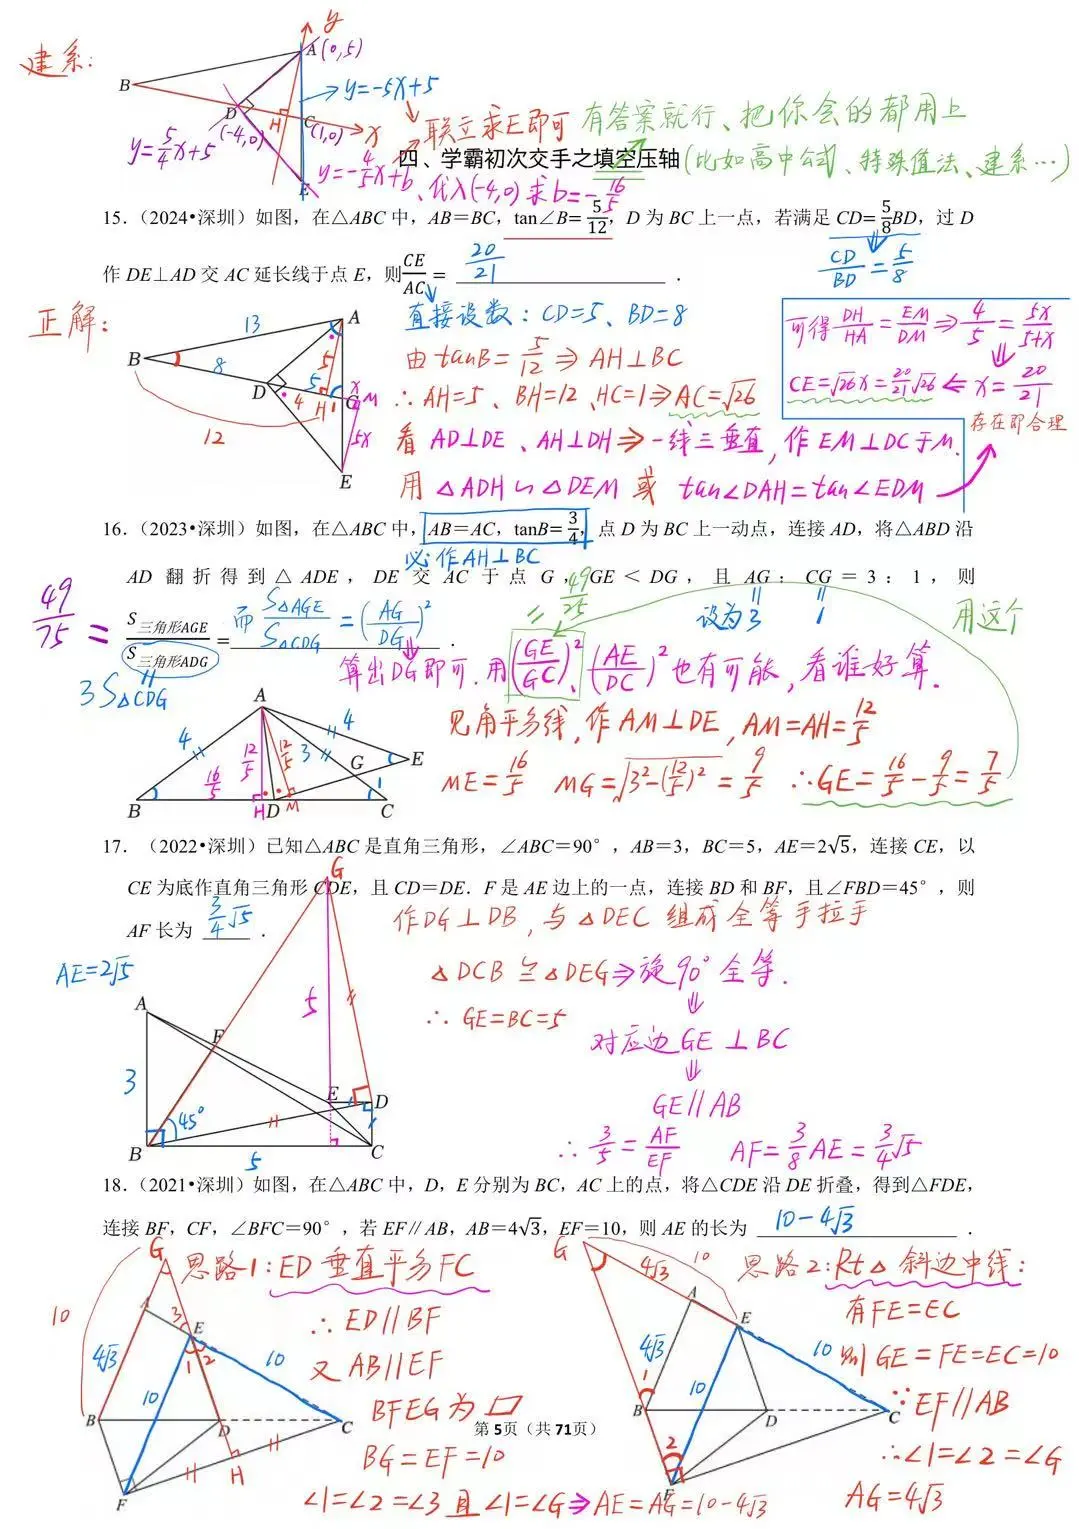 建系:
y
A(0,5)
B
y=-5x+5
D
H
C
(-4,0)
(1,0)
x
联立求E即可
有答案就行、把你会的都用上
y=5/4x+5
四、学霸初次交手之填空压轴
(比如高中公式、特殊值法、建系…)
E
y=-4/5x+b、代入(-4,0)求b=-16/5
15.（2024•深圳）如图，在△ABC 中，AB＝BC，tan∠B=5/12，D 为 BC 上一点，若满足 CD=5/8BD，过 D
作 DE⊥AD 交 AC 延长线于点 E，则CE/AC＝ 20/21 .
CD/BD=5/8
正解:
13
A
B
8
D
5
5
4
H
1
C
x
M
5x
12
E
直接设数: CD=5、BD=8
由 tanB=5/12⇒AH⊥BC
∴AH=5、BH=12、HC=1⇒AC=√26
看 AD⊥DE、AH⊥DH⇒一线三垂直,作EM⊥DC于M.
用 △ADH∽△DEM 或 tan∠DAH=tan∠EDM
可得DH/HA=EM/DM⇒4/5=5x/5+x
CE=√26x=20/21√26⇐x=20/21
存在即合理
16.（2023•深圳）如图，在△ABC 中，AB＝AC，tanB=3/4，点 D 为 BC 上一动点，连接 AD，将△ABD 沿
必作AH⊥BC
AD 翻折得到△ADE，DE 交 AC 于点 G，GE＜DG，且 AG：CG＝3：1，则
设为3
1
用这个
49/75=
S三角形AGE/S三角形ADG＝ .
3S△CDG
而S△AGE/S△CDG=(AG/DG)²
=49/25
算出DG即可.用(GE/GC)²、(AE/DC)²也有可能,看谁好算.
A
4
4
12/5
12/5
3
16/5
G
E
1
B
H
D
M
C
见角平分线,作AM⊥DE,AM=AH=12/5
ME=16/5 MG=√3²-(12/5)²=9/5 ∴GE=16/5-9/5=7/5
17.（2022•深圳）已知△ABC 是直角三角形，∠ABC＝90°，AB＝3，BC＝5，AE＝2√5，连接 CE，以
CE 为底作直角三角形 CDE，且 CD＝DE．F 是 AE 边上的一点，连接 BD 和 BF，且∠FBD＝45°，则
AF 长为 3/4√5 .
G
AE=2√5
A
5
F
3
E
D
45°
B
5
C
作DG⊥DB,与△DEC 组成全等手拉手
△DCB≌△DEG⇒旋90°全等.
∴GE=BC=5
对应边GE⊥BC
⇓
GE∥AB
∴3/5=AF/EF AF=3/8AE=3/4√5
18.（2021•深圳）如图，在△ABC 中，D，E 分别为 BC，AC 上的点，将△CDE 沿 DE 折叠，得到△FDE，
连接 BF，CF，∠BFC＝90°，若 EF∥AB，AB＝4√3，EF＝10，则 AE 的长为 10-4√3 .
G
10
A
3
E
1
2
4√3
10
10
B
D
C
H
F
思路1:ED垂直平分FC
∴ED∥BF
又AB∥EF
BFEG为▱
BG=EF=10
∠1=∠2=∠3且∠1=∠G⇒AE=AG=10-4√3
G
4√3
10
A
E
4√3
10
10
1
B
D
C
2
F
思路2:Rt△斜边中线:
有FE=EC
则GE=FE=EC=10
∵EF∥AB
∴∠1=∠2=∠G
AG=4√3
第 5页（共 71页）